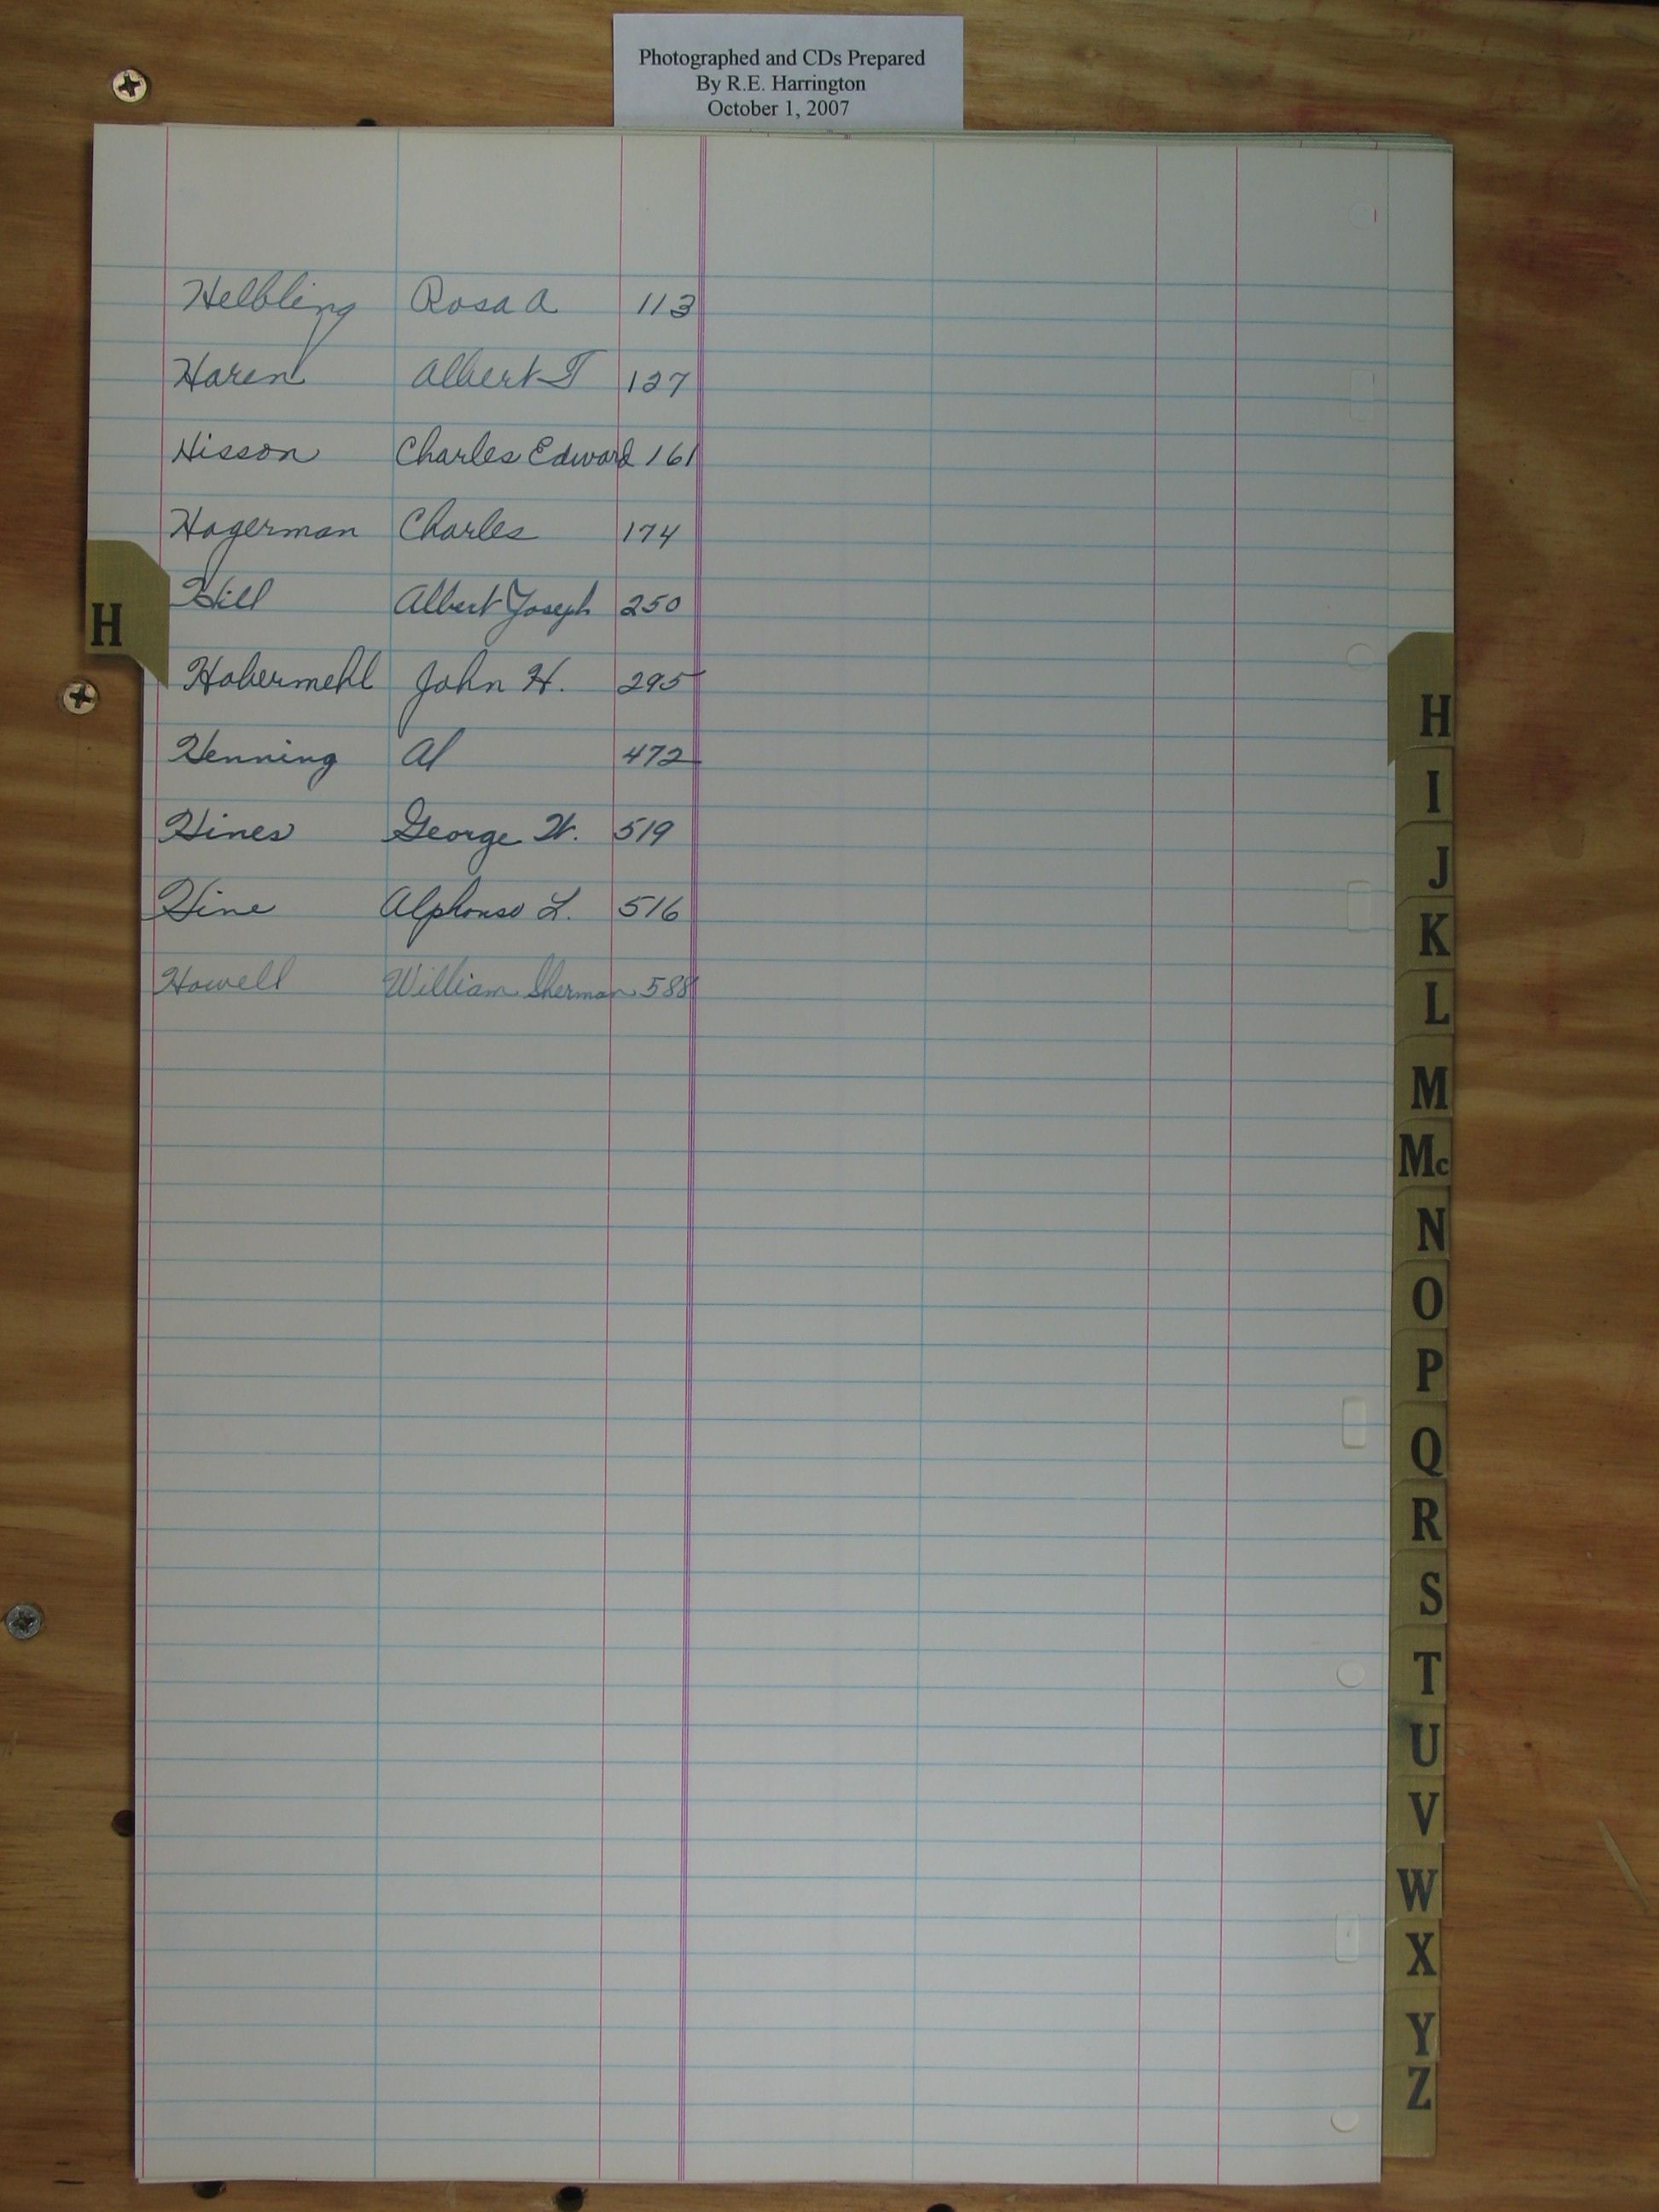 Photographed and CDs Prepared
By R.E. Harrington
October 1, 2007
Helbling Rosa A 113
Haren Albert T 127
Hisson Charles Edward 161
Hagerman Charles 174
Hill Albert Joseph 250
H
Habermehl John H. 295
Henning Al 472
Hines George W. 519
Hine Alphonso L. 516
Howell William Sherman 588
H
I
J
K
L
M
Mc
N
O
P
Q
R
S
T
U
V
W
X
Y
Z